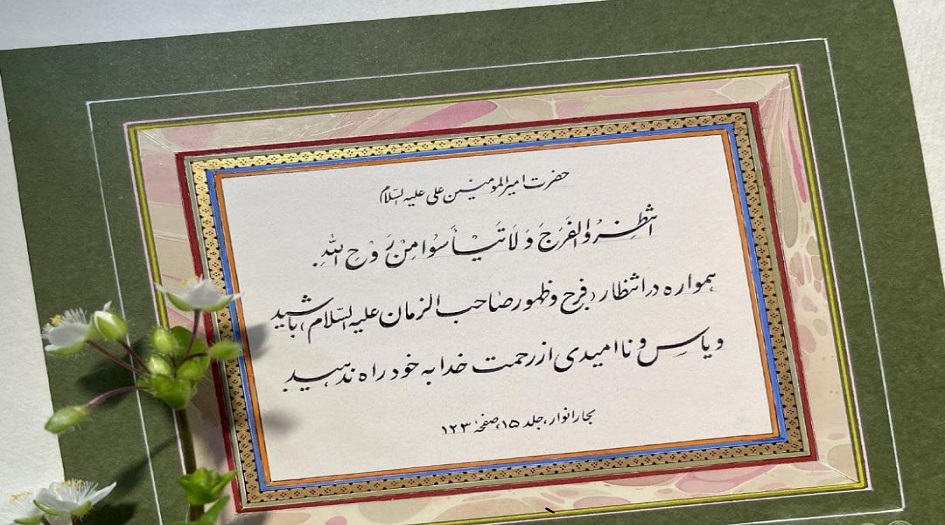 حضرت امیرالمومنین علی علیه السلام
انتظروالفَرَجَ وَ لاَ تَیأسُوا مِنْ رَوْحِ اللهِ.
همواره در انتظار فرج و ظهور صاحب الزمان علیه السلام، باشید
و یاس و ناامیدی از رحمت خدا به خود راه ندهید
بحارانوار، جلد ۱۵، صفحۀ ۱۲۳